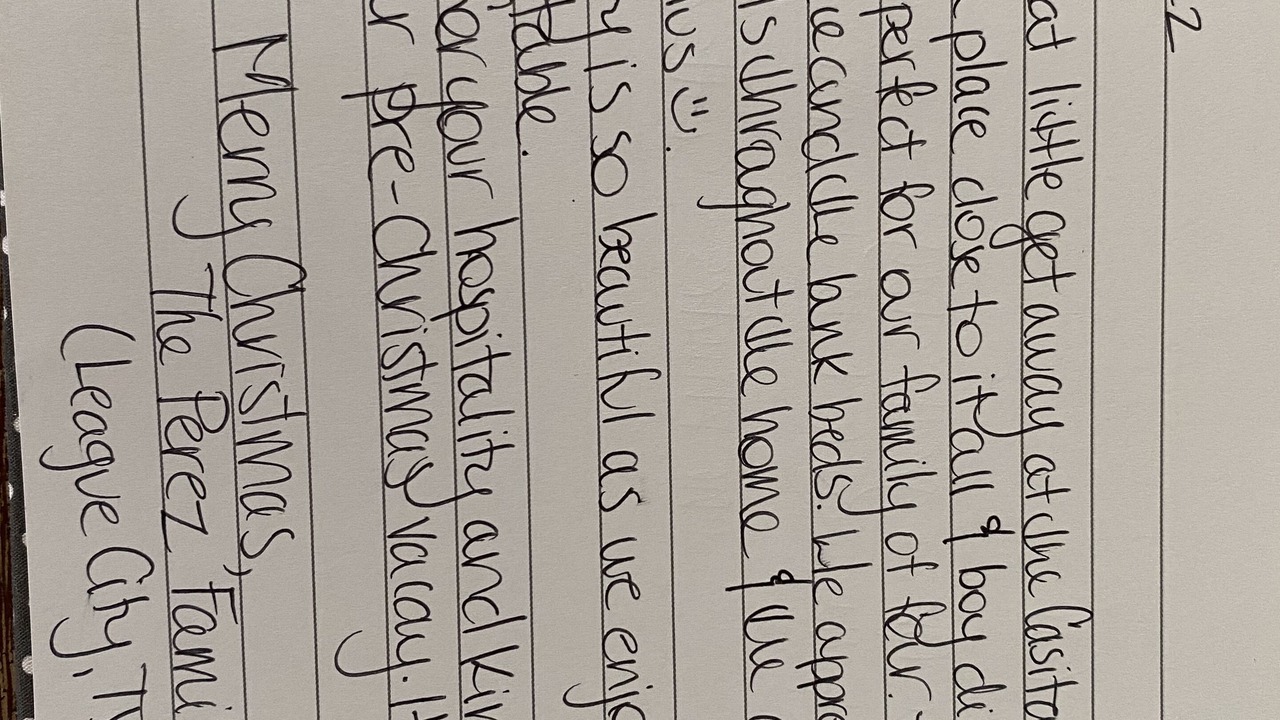 22
at little get away at the Casita
place close to it all & boy di
perfect for our family of four.
e and the bunk beds! We appre
is throughout the home & the
us :).
y is so beautiful as we enjo
table.
for your hospitality and kin
ur pre-Christmas vacay. H
Merry Christmas,
The Perez Fami
(League City, TX